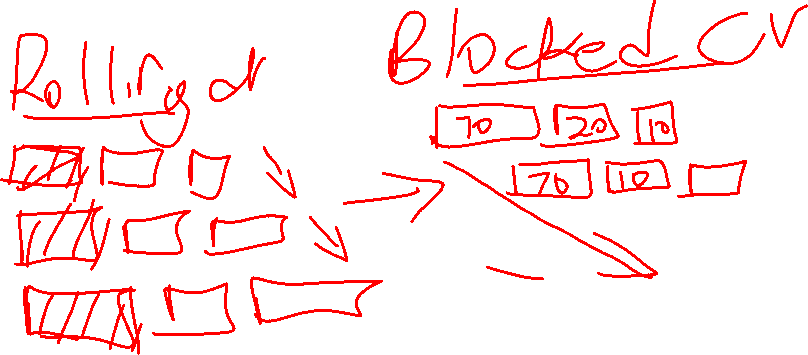 Rolling cv
Blocked CV
70 20 10
70 10